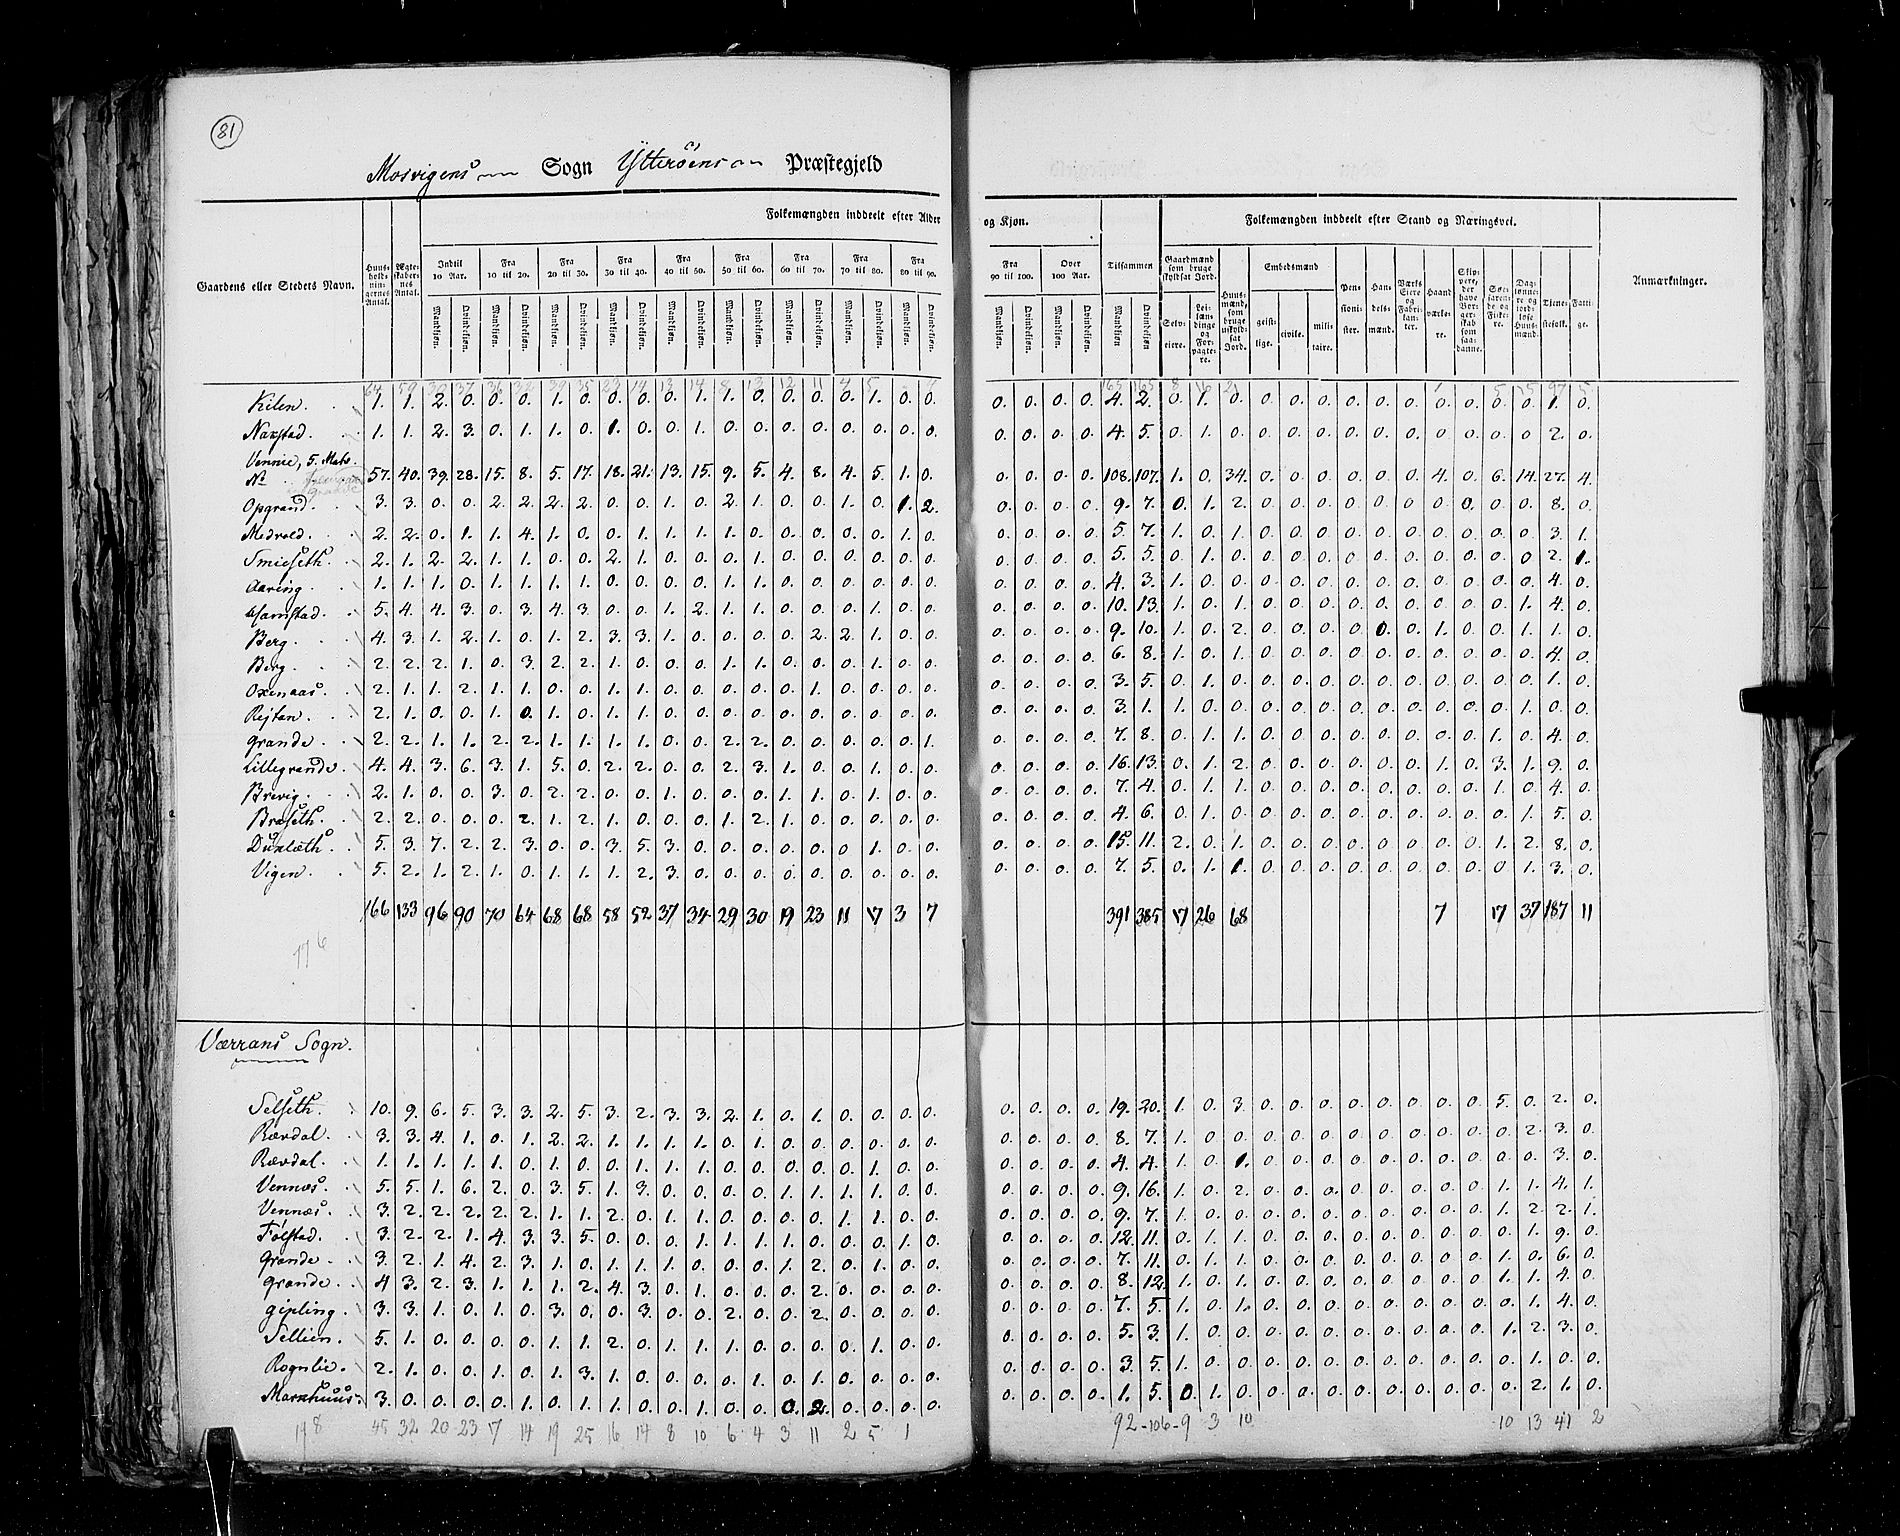 81
Mosvigens Sogn Ytterøens Præstegjeld
Folkemængden inddeelt efter Alder og Kjøn.
Folkemængden inddeelt efter Stand og Næringsvei.
Gaardens eller Stedets Navn.
Huusholdningernes Antal.
Ægteskabernes Antal.
Indtil 10 Aar.
Fra 10 til 20.
Fra 20 til 30.
Fra 30 til 40.
Fra 40 til 50.
Fra 50 til 60.
Fra 60 til 70.
Fra 70 til 80.
Fra 80 til 90.
Fra 90 til 100.
Over 100 Aar.
Tilsammen
Mandkjøn. Qvindekjøn.
Gaardmænd som bruge skyldsat Jord.
Selveiere.
Leilændinge og Forpagtere.
Huusmænd, som bruge uskyldsat Jord.
Embedsmænd
geistlige. civile. militaire.
Pensionister.
Handelsmænd.
Værks Eiere og Fabrikanter.
Haandværkere.
Skippere, der have Borgerskab som saadanne.
Søefarende og Fiskere.
Daglønnere og jordløse Huusmænd.
Tjenestefolk.
Fattige.
Anmærkninger.
Kilen. 1. 1. 2. 0. 0. 0. 1. 0. 0. 0. 0. 1. 1. 0. 0. 0. 0. 1. 0. 0. 0. 0. 0. 0. 4. 2. 0. 1. 0. 0. 0. 0. 0. 0. 0. 0. 0. 0. 0. 1. 0.
Naxstad. 1. 1. 2. 3. 0. 1. 1. 0. 1. 0. 0. 1. 0. 0. 0. 0. 0. 0. 0. 0. 0. 0. 0. 0. 4. 5. 0. 1. 0. 0. 0. 0. 0. 0. 0. 0. 0. 0. 0. 2. 0.
Vennie, 5. Matr.
No 57. 40. 39. 28. 15. 8. 5. 17. 18. 21. 13. 15. 9. 5. 4. 8. 4. 5. 1. 0. 0. 0. 0. 0. 108. 107. 1. 0. 34. 0. 0. 0. 0. 0. 0. 4. 0. 6. 14. 27. 4.
Opgrand. 3. 3. 0. 0. 2. 2. 2. 2. 0. 0. 1. 0. 2. 1. 0. 0. 1. 0. 1. 2. 0. 0. 0. 0. 9. 7. 0. 1. 2. 0. 0. 0. 0. 0. 0. 0. 0. 0. 0. 8. 0.
Medvold. 2. 2. 0. 1. 1. 4. 1. 0. 0. 1. 1. 1. 1. 0. 0. 0. 0. 0. 1. 0. 0. 0. 0. 0. 5. 7. 1. 0. 1. 0. 0. 0. 0. 0. 0. 0. 0. 0. 0. 3. 1.
Smidseth. 2. 1. 2. 2. 1. 1. 0. 0. 2. 1. 0. 0. 0. 1. 0. 0. 0. 0. 0. 0. 0. 0. 0. 0. 5. 5. 0. 1. 0. 0. 0. 0. 0. 0. 0. 0. 0. 0. 0. 2. 1.
Aaring. 1. 1. 1. 0. 1. 1. 1. 1. 0. 0. 0. 0. 1. 1. 0. 0. 0. 0. 0. 0. 0. 0. 0. 0. 4. 3. 1. 0. 0. 0. 0. 0. 0. 0. 0. 0. 0. 0. 0. 4. 0.
Hamstad. 5. 4. 4. 3. 0. 3. 4. 3. 0. 0. 1. 2. 1. 1. 0. 0. 0. 1. 0. 0. 0. 0. 0. 0. 10. 13. 1. 0. 1. 0. 0. 0. 0. 0. 0. 0. 0. 0. 1. 4. 0.
Berg. 4. 3. 1. 2. 1. 0. 1. 2. 3. 3. 1. 0. 0. 0. 0. 2. 2. 1. 0. 0. 0. 0. 0. 0. 9. 10. 1. 0. 2. 0. 0. 0. 0. 0. 0. 1. 0. 0. 1. 1. 0.
Berg. 2. 2. 2. 1. 0. 3. 2. 2. 1. 0. 0. 0. 1. 1. 0. 0. 0. 1. 0. 0. 0. 0. 0. 0. 6. 8. 1. 0. 1. 0. 0. 0. 0. 0. 0. 0. 0. 0. 0. 4. 0.
Oxenaas. 2. 1. 1. 2. 1. 1. 0. 0. 1. 1. 0. 0. 0. 0. 0. 1. 0. 0. 0. 0. 0. 0. 0. 0. 3. 5. 0. 1. 0. 0. 0. 0. 0. 0. 0. 0. 0. 0. 0. 1. 0.
Rejtan. 2. 1. 0. 0. 1. 0. 1. 0. 1. 1. 0. 0. 0. 0. 0. 0. 0. 0. 0. 0. 0. 0. 0. 0. 3. 1. 1. 0. 0. 0. 0. 0. 0. 0. 0. 0. 0. 0. 1. 0. 0.
Grande. 2. 2. 1. 1. 2. 2. 1. 1. 1. 1. 0. 0. 2. 2. 0. 0. 0. 0. 0. 1. 0. 0. 0. 0. 7. 8. 0. 1. 1. 0. 0. 0. 0. 0. 0. 0. 0. 1. 0. 4. 0.
Lillegrande. 4. 4. 3. 6. 3. 1. 5. 0. 2. 2. 0. 0. 2. 3. 1. 0. 0. 1. 0. 0. 0. 0. 0. 0. 16. 13. 0. 1. 2. 0. 0. 0. 0. 0. 0. 1. 0. 3. 1. 9. 0.
Brevig. 2. 1. 0. 0. 3. 0. 2. 2. 0. 0. 1. 0. 0. 0. 1. 1. 0. 1. 0. 0. 0. 0. 0. 0. 7. 4. 0. 1. 1. 0. 0. 0. 0. 0. 0. 0. 0. 1. 0. 4. 0.
Braseth. 2. 2. 0. 0. 0. 2. 1. 2. 1. 0. 0. 0. 1. 2. 1. 0. 0. 0. 0. 0. 0. 0. 0. 0. 4. 6. 0. 1. 0. 0. 0. 0. 0. 0. 0. 0. 0. 0. 1. 5. 0.
5. 3. 7. 2. 2. 3. 0. 0. 3. 5. 3. 0. 0. 0. 0. 0. 0. 1. 0. 0. 0. 0. 0. 0. 15. 11. 2. 0. 1. 0. 0. 0. 0. 0. 0. 0. 0. 1. 2. 8. 0.
Vigen. 5. 2. 1. 2. 1. 0. 1. 1. 1. 2. 3. 0. 0. 0. 0. 0. 0. 0. 0. 0. 0. 0. 0. 0. 7. 5. 0. 1. 1. 0. 0. 0. 0. 0. 0. 0. 0. 0. 1. 3. 0.
166 133 96 90 70 64 68 68 58 52 37 34 29 30 19 23 11 17 3 7 391 385 17 26 68 7 17 37 187 11
176
Værrans Sogn.
Selseth. 10. 9. 6. 5. 3. 3. 2. 5. 3. 2. 3. 3. 2. 1. 0. 1. 0. 0. 0. 0. 0. 0. 0. 0. 19. 20. 1. 0. 3. 0. 0. 0. 0. 0. 0. 0. 0. 5. 0. 2. 0.
Rævdal. 3. 3. 4. 1. 0. 1. 2. 2. 1. 1. 1. 1. 0. 1. 0. 0. 0. 0. 0. 0. 0. 0. 0. 0. 8. 7. 1. 0. 0. 0. 0. 0. 0. 0. 0. 0. 0. 0. 2. 3. 0.
Rævdal. 1. 1. 1. 1. 1. 0. 1. 0. 0. 1. 1. 1. 0. 0. 0. 0. 0. 1. 0. 0. 0. 0. 0. 0. 4. 4. 1. 0. 1. 0. 0. 0. 0. 0. 0. 0. 0. 0. 0. 3. 0.
Vennæs. 5. 5. 1. 6. 2. 0. 3. 5. 1. 3. 0. 0. 0. 0. 1. 1. 1. 1. 0. 0. 0. 0. 0. 0. 9. 16. 1. 0. 2. 0. 0. 0. 0. 0. 0. 0. 0. 1. 1. 4. 1.
Vennæs. 3. 2. 2. 2. 2. 2. 1. 1. 2. 0. 1. 1. 0. 0. 0. 0. 1. 1. 0. 0. 0. 0. 0. 0. 9. 7. 1. 0. 0. 0. 0. 0. 0. 0. 0. 0. 0. 1. 2. 2. 1.
Følstad. 3. 2. 2. 1. 4. 3. 3. 5. 0. 0. 0. 1. 1. 1. 1. 0. 0. 0. 1. 0. 0. 0. 0. 0. 12. 11. 0. 1. 1. 0. 0. 0. 0. 0. 0. 0. 0. 0. 1. 9. 0.
Grande. 3. 2. 1. 4. 2. 3. 1. 0. 1. 1. 1. 0. 0. 0. 1. 2. 0. 1. 0. 0. 0. 0. 0. 0. 7. 11. 0. 1. 1. 0. 0. 0. 0. 0. 0. 0. 0. 1. 0. 6. 0.
Grande. 4 3. 2. 3. 1. 1. 1. 2. 4. 3. 0. 1. 0. 0. 0. 2. 0. 0. 0. 0. 0. 0. 0. 0. 8. 12. 1. 0. 1. 0. 0. 0. 0. 0. 0. 0. 0. 1. 1. 4. 0.
Gipling. 3. 3. 1. 0. 1. 0. 3. 0. 0. 3. 0. 0. 2. 0. 0. 2. 0. 0. 0. 0. 0. 0. 0. 0. 7. 5. 1. 0. 1. 0. 0. 0. 0. 0. 0. 0. 0. 0. 1. 4. 0.
Sellien. 5. 1. 0. 0. 0. 0. 1. 1. 2. 0. 1. 1. 1. 0. 0. 0. 0. 1. 0. 0. 0. 0. 0. 0. 5. 3. 1. 0. 0. 0. 0. 0. 0. 0. 0. 0. 0. 1. 2. 3. 0.
Rognlie. 2. 1. 0. 0. 1. 0. 1. 3. 1. 0. 0. 0. 0. 1. 0. 1. 0. 0. 0. 0. 0. 0. 0. 0. 3. 5. 1. 0. 0. 0. 0. 0. 0. 0. 0. 0. 0. 0. 1. 0. 0.
3. 0. 0. 0. 0. 1. 0. 1. 1. 0. 0. 1. 0. 0. 0. 2. 0. 0. 0. 0. 0. 0. 0. 0. 1. 5. 0. 1. 0. 0. 0. 0. 0. 0. 0. 0. 0. 0. 2. 1. 0.
178 45 32 20 23 17 14 19 25 16 14 8 10 6 4 3 11 2 5 1 92 106 9 3 10 10 13 41 2